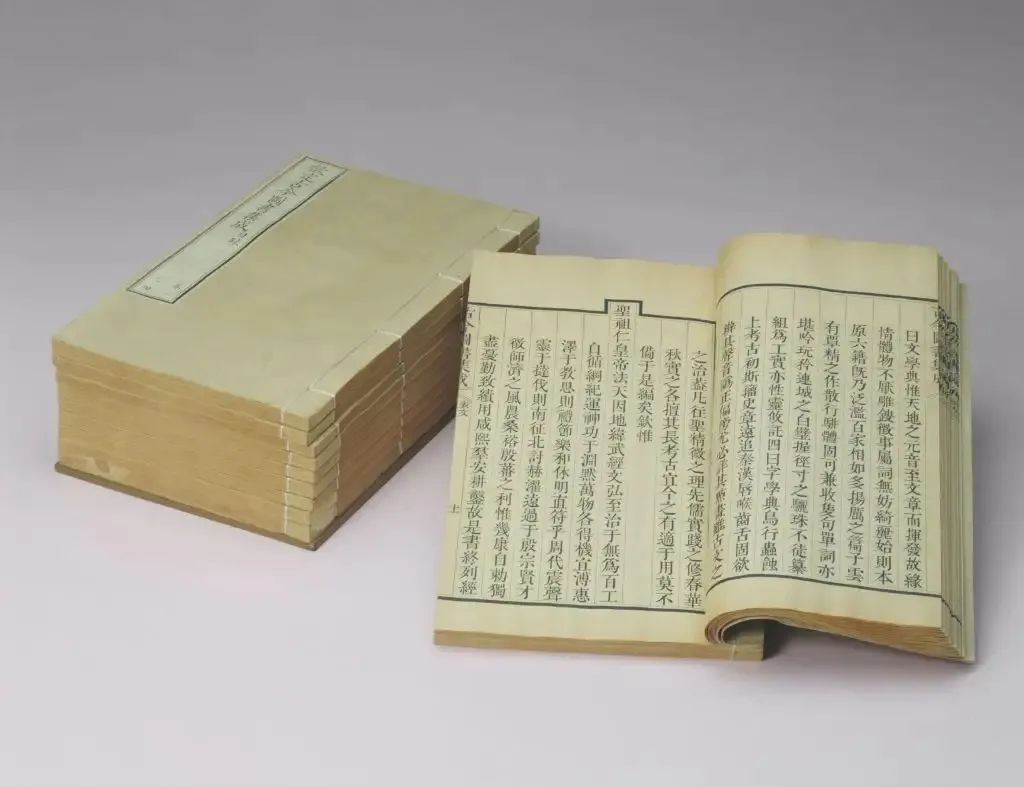 欽定古今圖書集成
曰文學典惟天地之元音至文章而揮發故緣
情體物不厭雕鎪徵事屬詞無妨綺麗始則本
原六籍既乃泛濫百家相如多揚厲之篇子雲
有覃精之作散行駢體固可兼收隻句單詞亦
堪吟玩矜連城之白璧握徑寸之驪珠不徒纂
組為工實亦性靈攸託四曰字學典鳥行蟲蝕
上考古初斯籀史章遠追秦漢唇喉齒舌固欲
辨其聲音
之治蓋凡往聖精微之理先儒實踐之修春華
秋實之各擅其長考古宜今之有適于用莫不
備于是編矣欽惟
聖祖仁皇帝法天因地緯武經文弘至治于無為百工
自循綱紀運神功于淵默萬物各得機宜溥惠
澤于教思則禮節樂和休明直符乎周代震聲
靈于撻伐則南征北討赫濯遠過于殷宗賢才
敬師濟之風農桑裕殷蕃之利惟幾康自勅獨
盡憂勤致績用咸熙羣安耕鑿故是書終列經
古今圖書集成